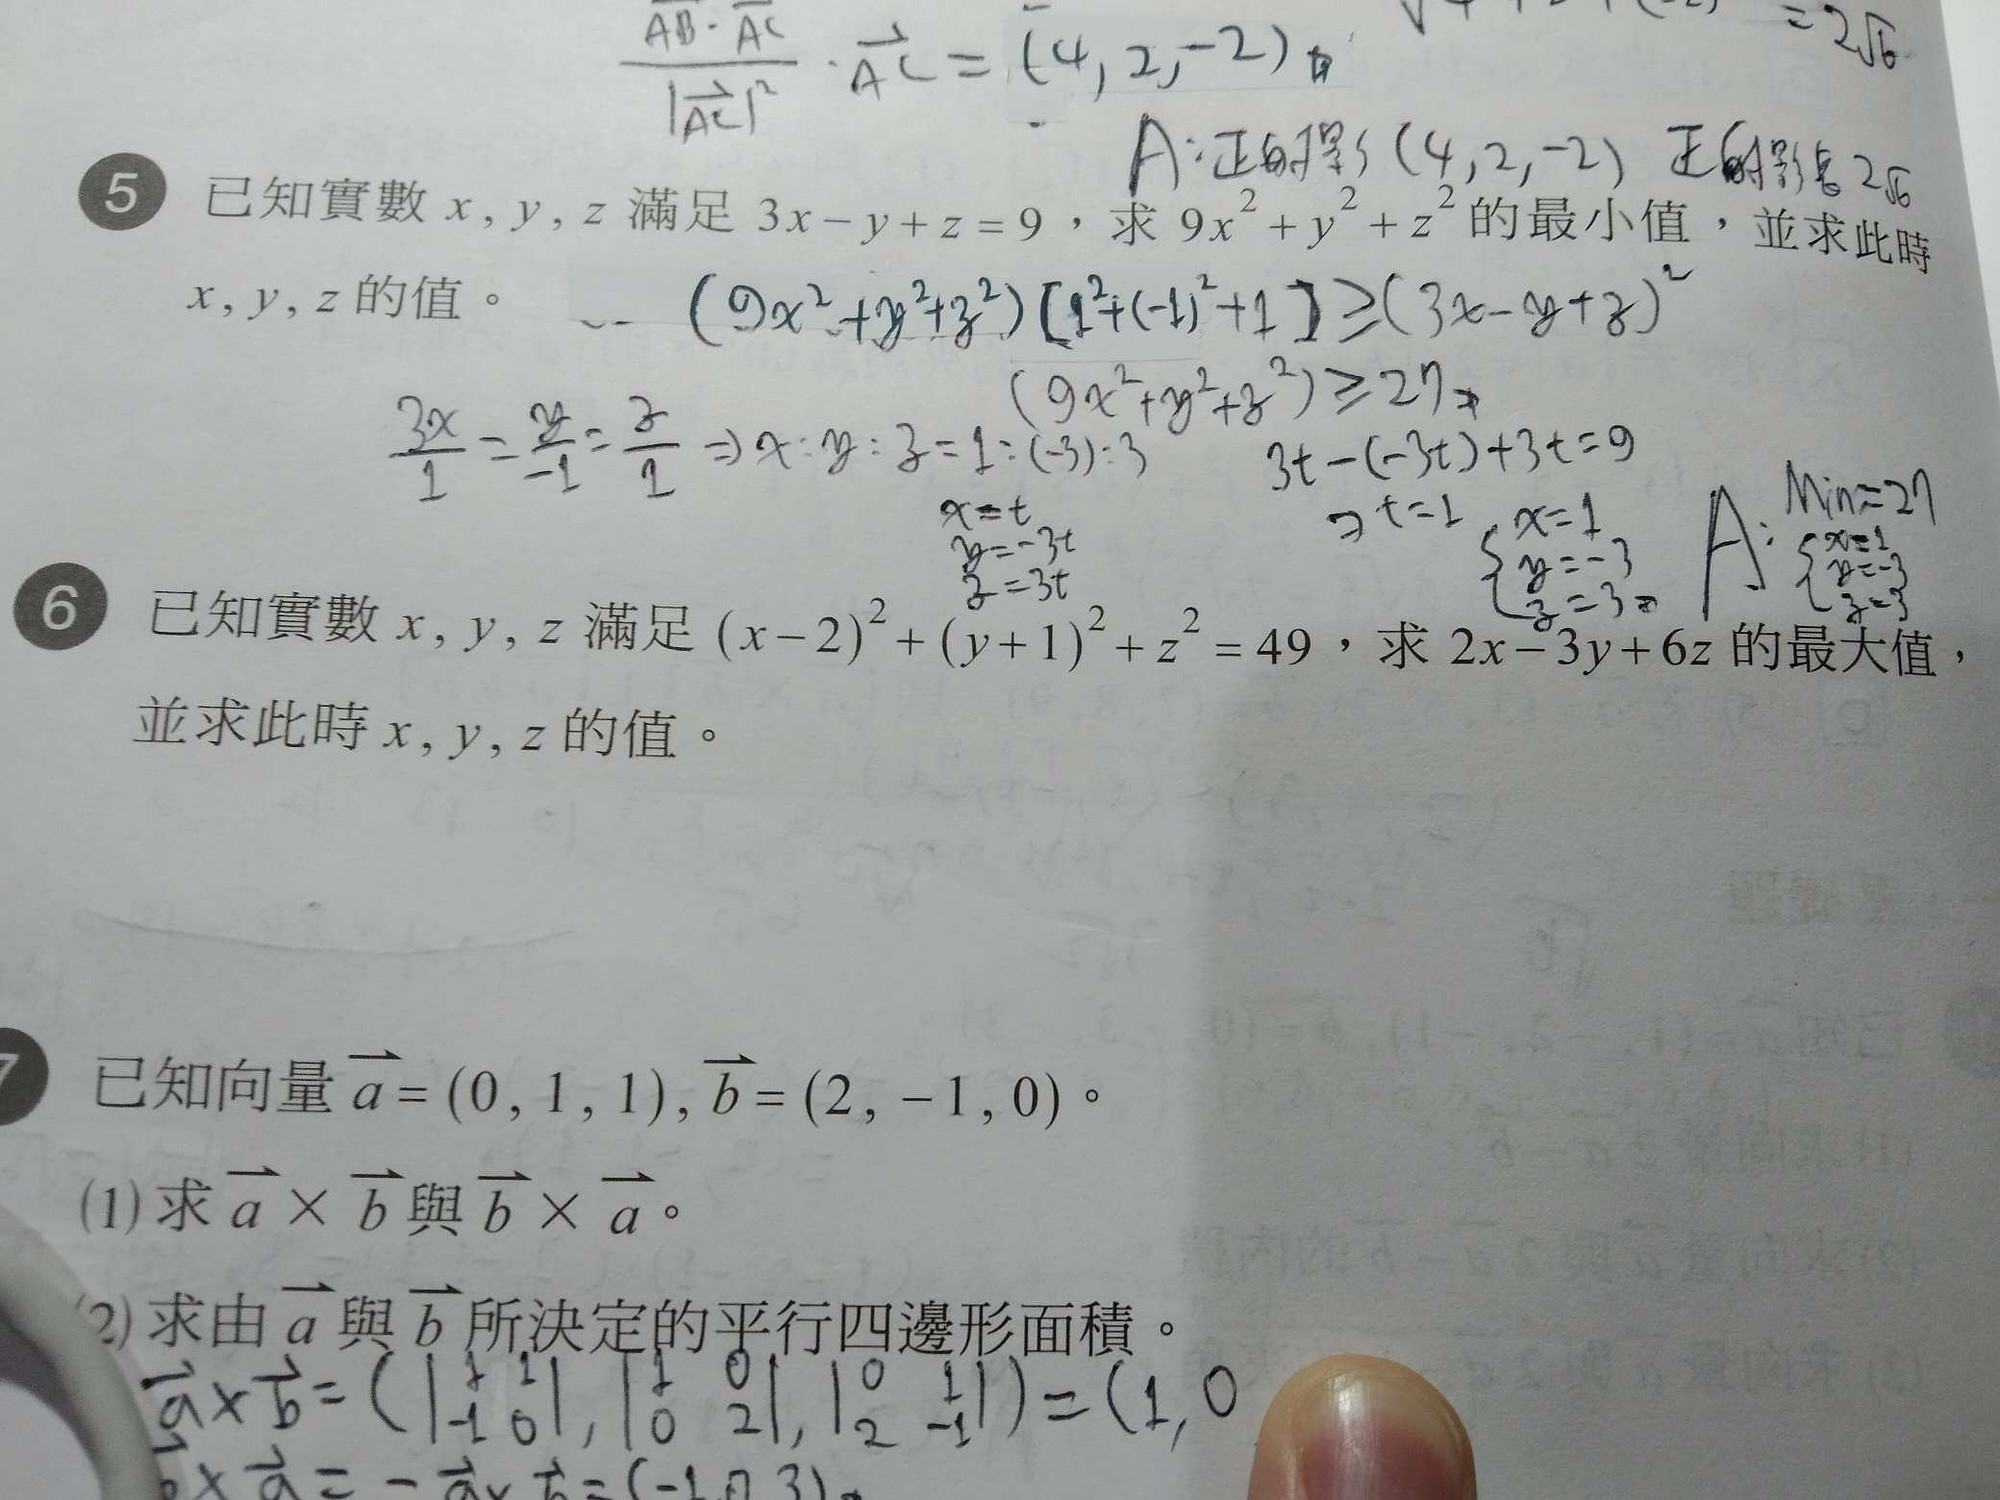 AB · AC
/ |AC|² · AC = (4, 2, -2)
= 2√6
A: 正射影 (4, 2, -2) 正射影長 2√6
5 已知實數 x, y, z 滿足 3x－y＋z＝9，求 9x²＋y²＋z² 的最小值，並求此時
x, y, z 的值。
(9x²+y²+z²)[1²+(-1)²+1] ≥ (3x-y+z)²
(9x²+y²+z²) ≥ 27
3x/1 = y/-1 = z/1 ⇒ x : y : z = 1 : (-3) : 3
3t-(-3t)+3t=9
x=t
y=-3t
z=3t
⇒ t=1
{ x=1
y=-3
z=3
A: Min=27
{ x=1
y=-3
z=3
6 已知實數 x, y, z 滿足 (x－2)²＋(y＋1)²＋z²＝49，求 2x－3y＋6z 的最大值，
並求此時 x, y, z 的值。
7 已知向量 a＝(0, 1, 1), b＝(2, －1, 0)。
(1) 求 a × b 與 b × a。
(2) 求由 a 與 b 所決定的平行四邊形面積。
a×b = (|1 1|, |1 0|, |0 1|) = (1, 0
|-1 0| |0 2| |2 -1|
b×a = - a×b = (-1, 0, 3)